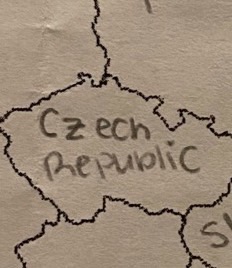 Czech
Republic
sl